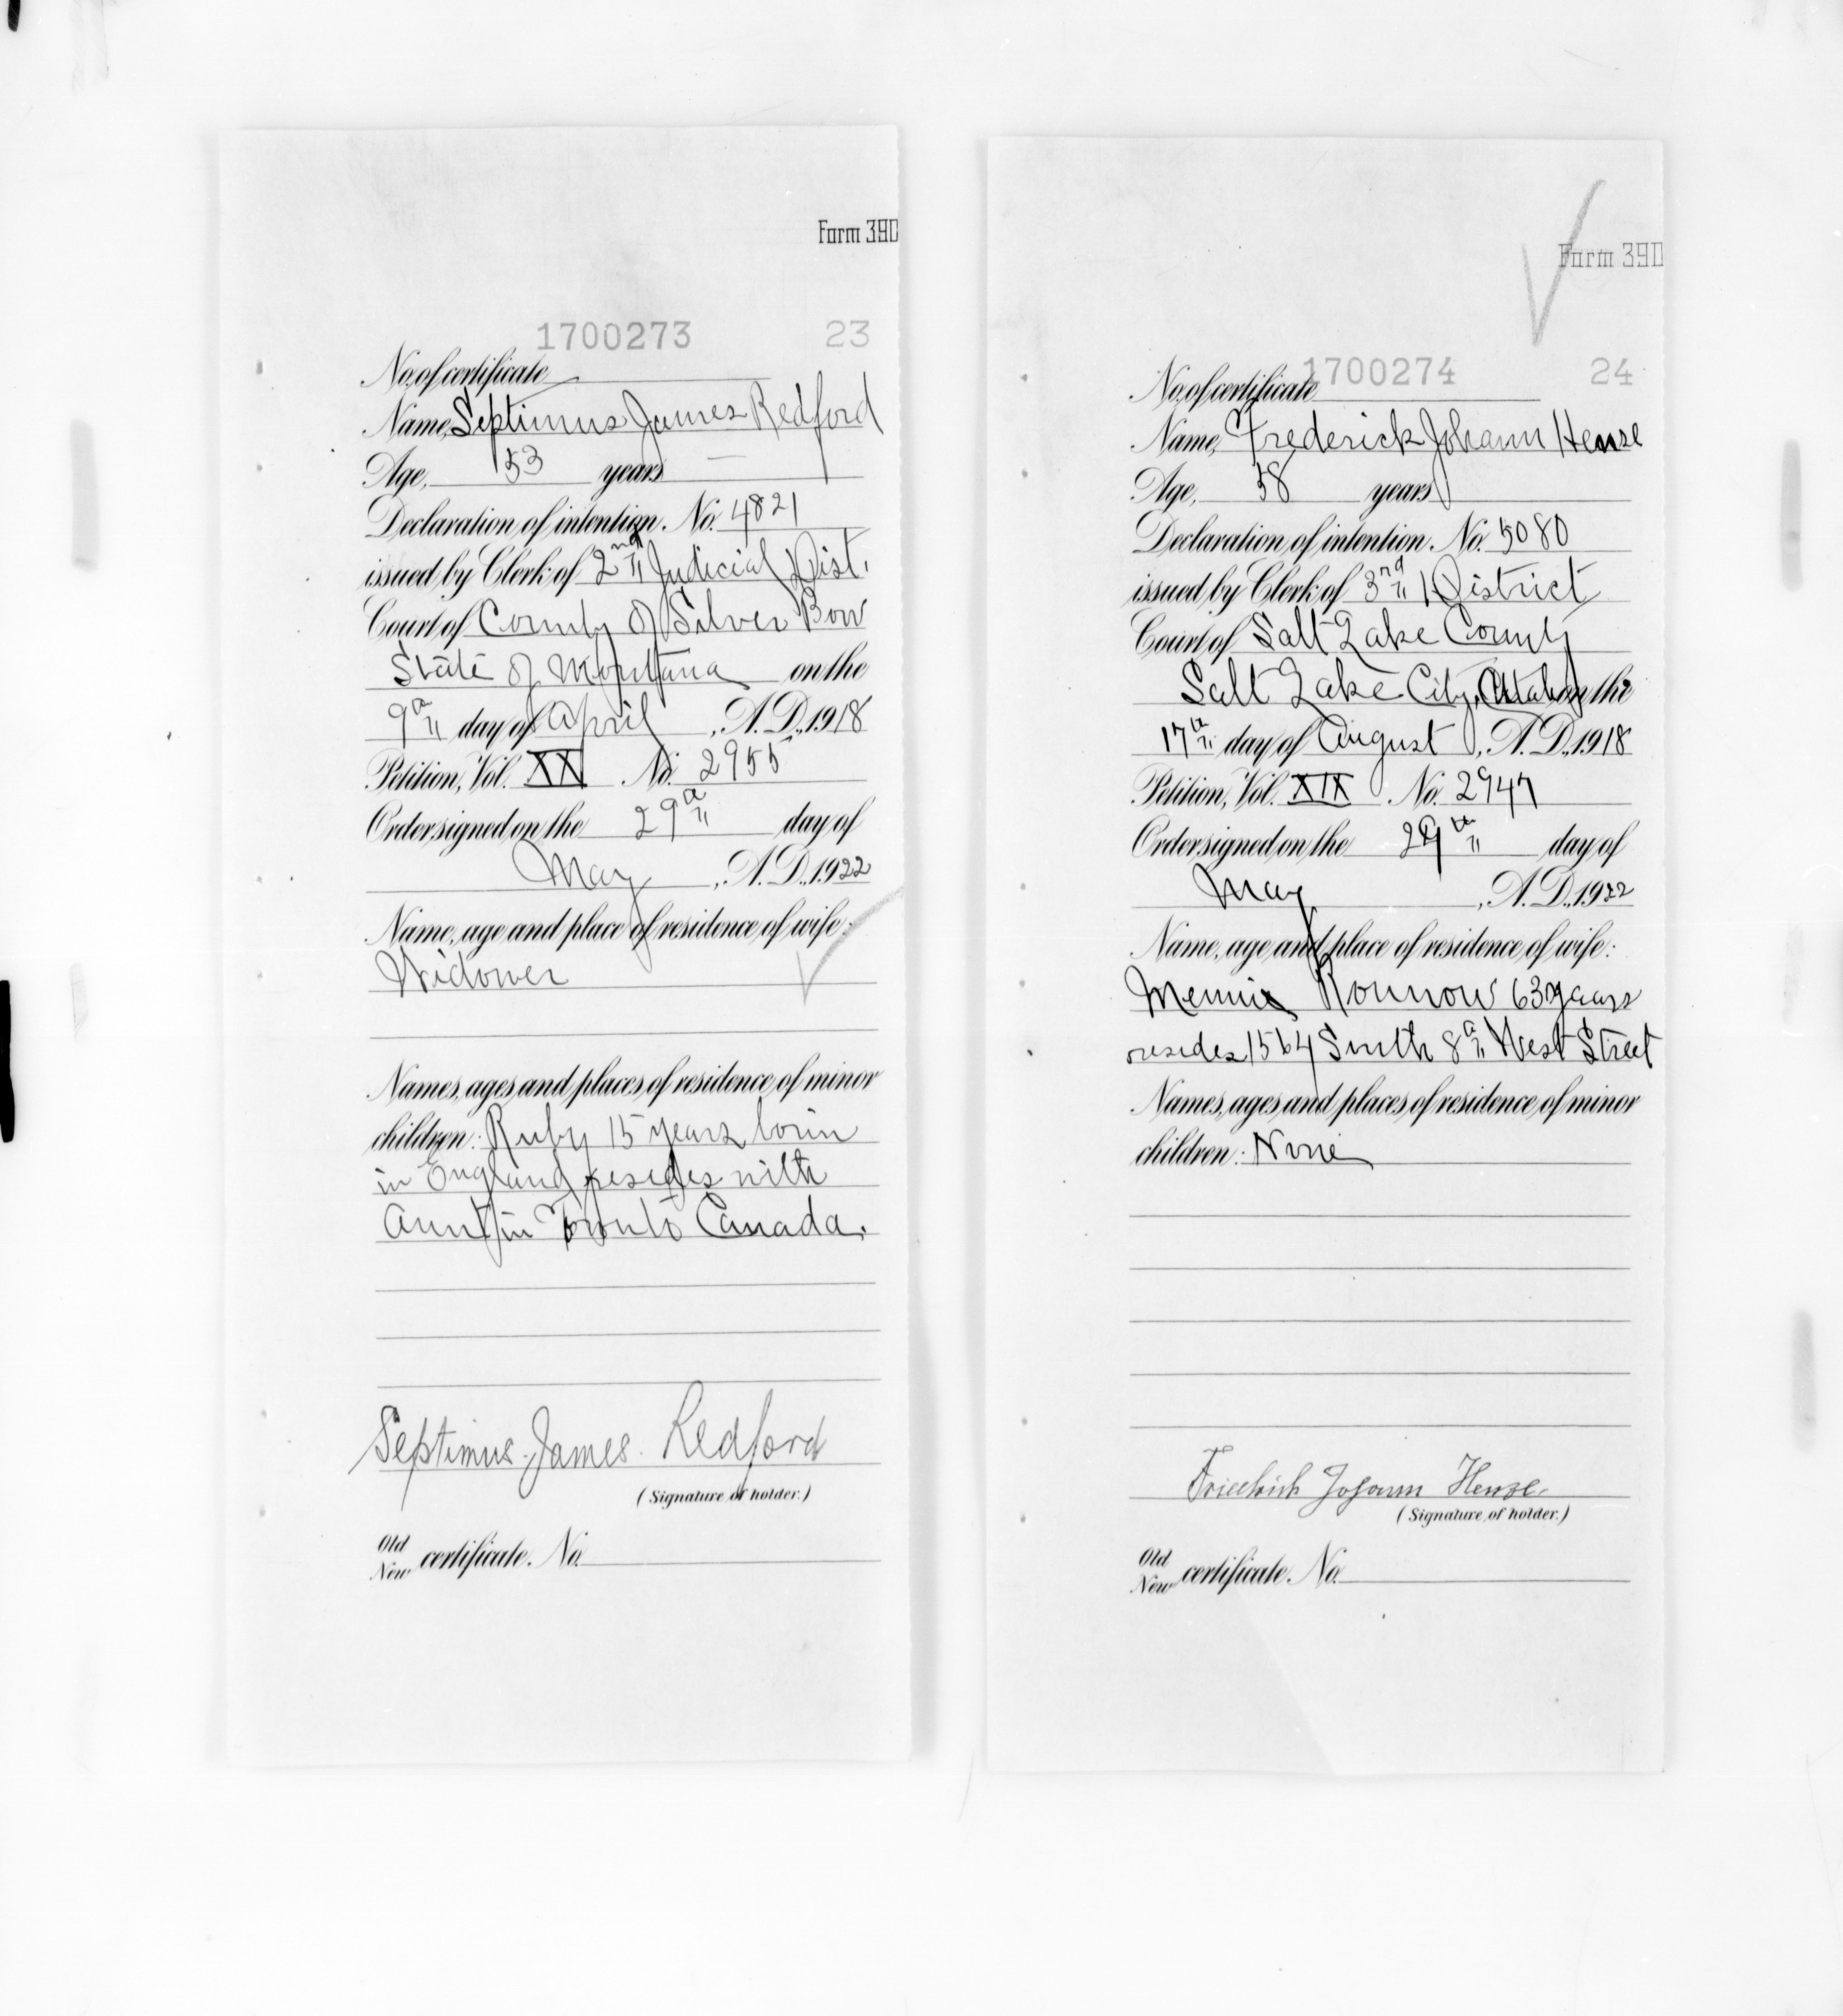 Form 390
1700273 23
No. of certificate
Name, Septimus James Redford
Age, 53 years
Declaration of intention. No. 4821
issued by Clerk of 2nd Judicial Dist.
Court of County of Silver Bow
State of Montana on the
9th day of April, A. D., 1918
Petition, Vol. XX No. 2955
Order signed on the 29th day of
May, A. D., 1922
Name, age and place of residence of wife:
Widower
Names, ages and places of residence of minor
children: Ruby 15 years born
in England resides with
Aunt in Toronto Canada.
Septimus James Redford
(Signature of holder.)
Old
New certificate. No.
Form 390
1700274 24
No. of certificate
Name, Frederick Johann Hense
Age, 58 years
Declaration of intention. No. 5080
issued by Clerk of 3rd District
Court of Salt Lake County
Salt Lake City, Utah on the
17th day of August, A. D., 1918
Petition, Vol. XIX No. 2947
Order signed on the 29th day of
May, A. D., 1922
Name, age and place of residence of wife:
Ronnow 63 years
resides 1564 South 8th West Street
Names, ages and places of residence of minor
children: None
Friedrich Johann Hense.
(Signature of holder.)
Old
New certificate. No.